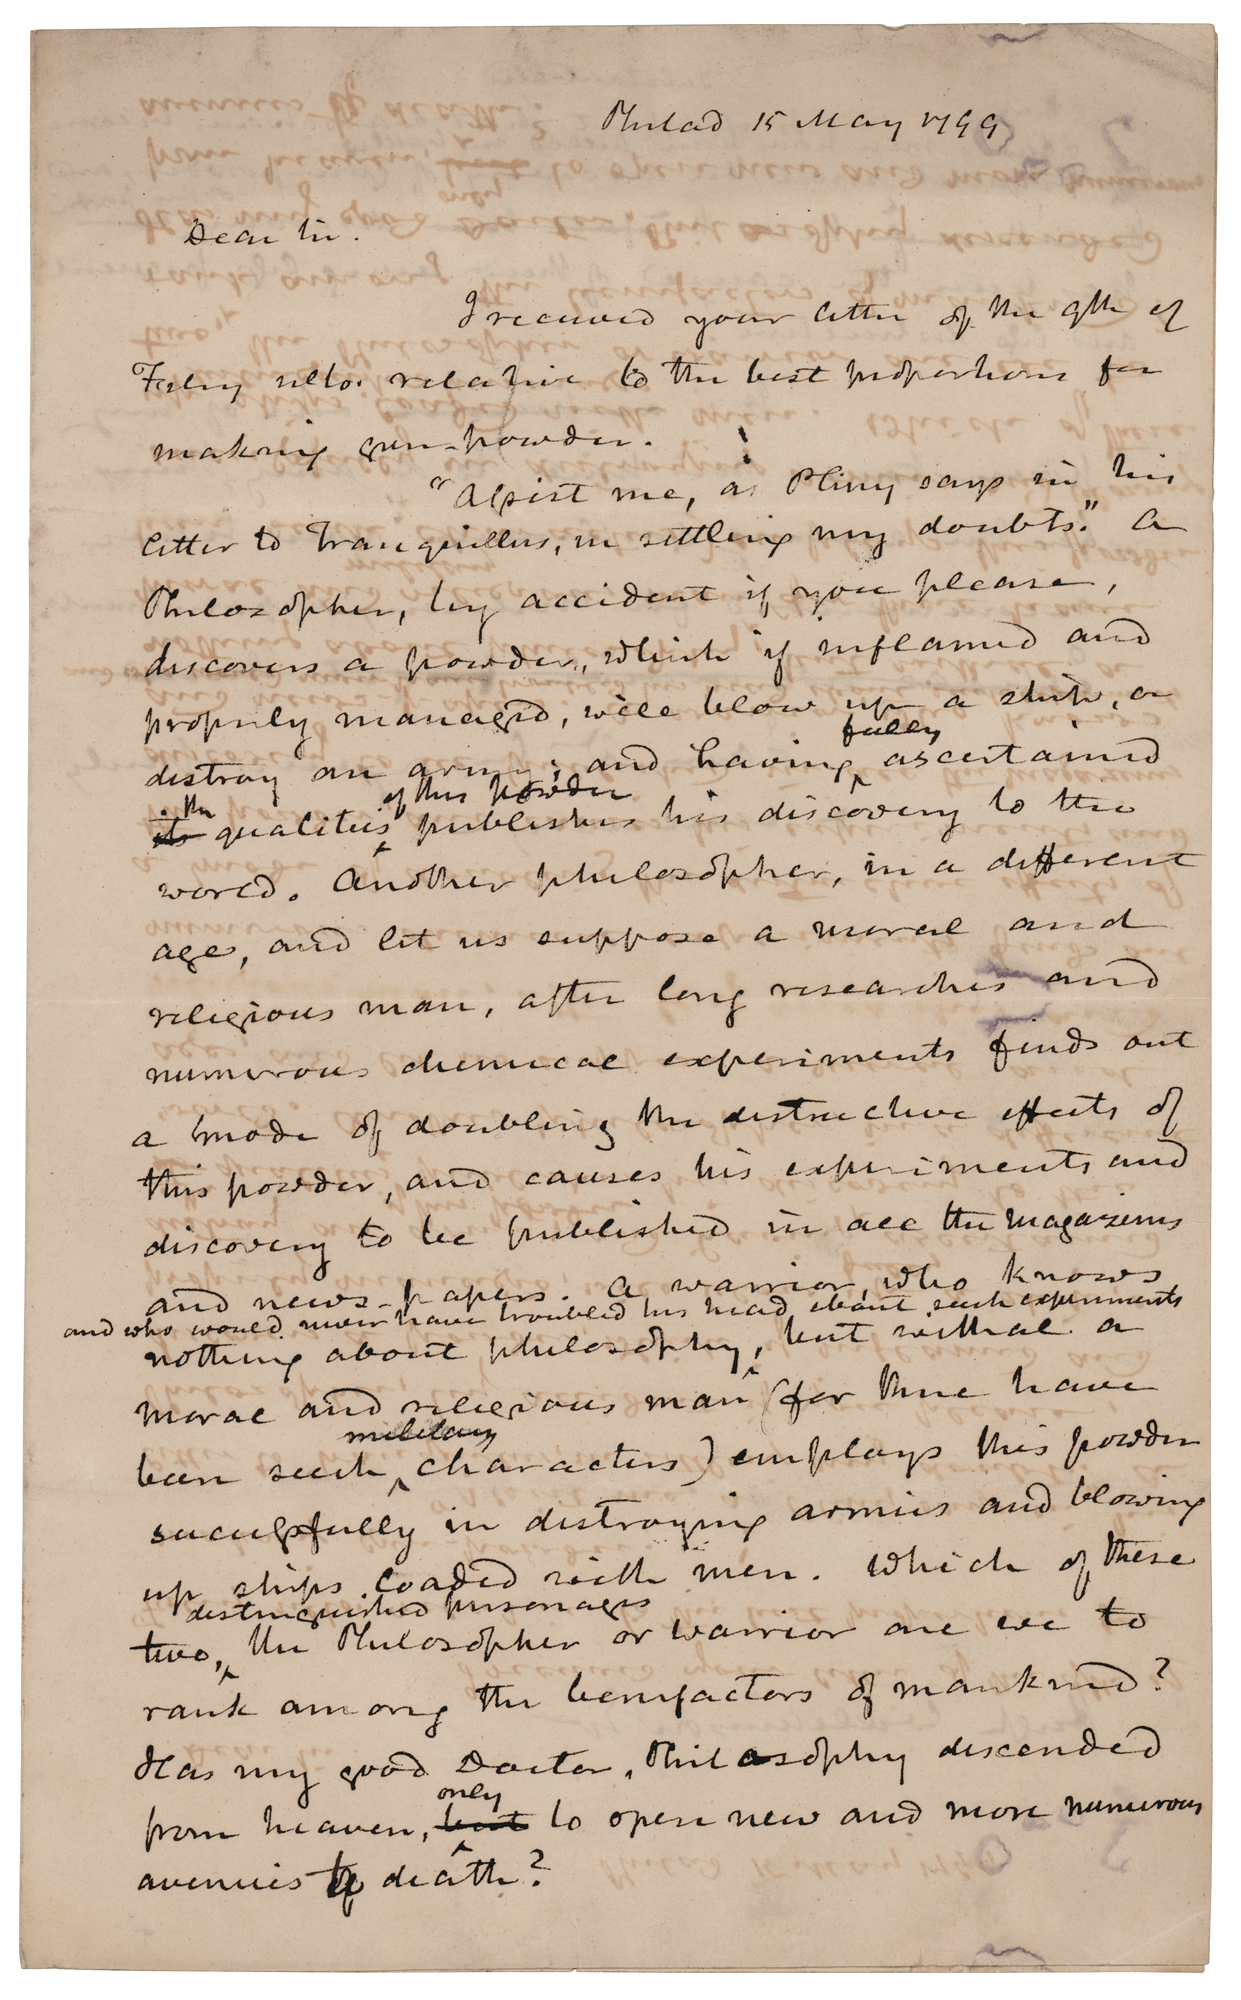 Philad 15 May 1799
Dear Sir.
I received your letter of the 9th of
Feby ulto. relative to the best proportions for
making gun-powder.
"Assist me, as Pliny says in his
letter to Tranquillus, in settling my doubts." A
Philosopher, by accident if you please,
discovers a powder, which if inflamed and
properly managed, will blow up a ship, or
fully
destroy an army; and having ascertained
the of this powder
its qualities publishes his discovery to the
world. Another philosopher, in a different
age, and let us suppose a moral and
religious man, after long researches and
numerous chemical experiments finds out
a mode of doubling the destructive effects of
this powder, and causes his experiments and
discovery to be published in all the magazines
and news-papers. A warrior, who knows
and who would never have troubled his head about such experiments
nothing about philosophy, but withal a
moral and religious man (for there have
military
been such characters) employs this powder
successfully in destroying armies and blowing
up ships loaded with men. Which of these
distinguished personages
two, the Philosopher or warrior are we to
rank among the benefactors of mankind?
Has my good Doctor, Philosophy descended
only
from heaven, but to open new and more numerous
avenues to death?